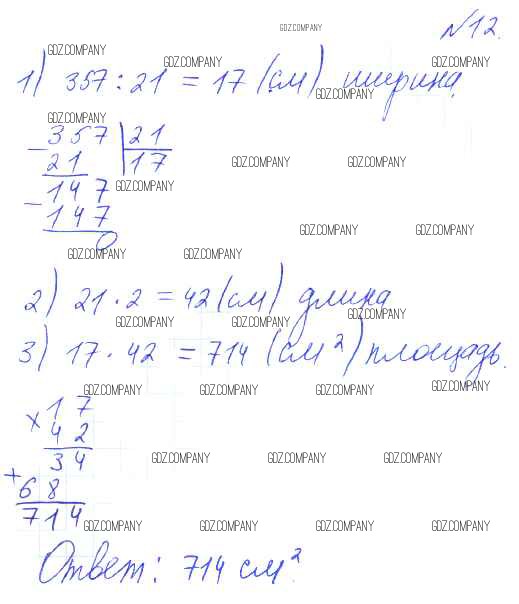 GDZ.COMPANY
№12.
GDZ.COMPANY GDZ.COMPANY GDZ.COMPANY
1) 357 : 21 = 17 (см) ширина.
GDZ.COMPANY
GDZ.COMPANY
- 357 | 21
21 17
GDZ.COMPANY GDZ.COMPANY
147
GDZ.COMPANY
- 147
0
GDZ.COMPANY GDZ.COMPANY
GDZ.COMPANY GDZ.COMPANY
2) 21 · 2 = 42 (см) длина
GDZ.COMPANY
GDZ.COMPANY GDZ.COMPANY
3) 17 · 42 = 714 (см²) площадь.
GDZ.COMPANY GDZ.COMPANY GDZ.COMPANY GDZ.COMPANY
× 17
42
34
GDZ.COMPANY GDZ.COMPANY GDZ.COMPANY
+ 68
714
GDZ.COMPANY GDZ.COMPANY GDZ.COMPANY GDZ.COMPANY
Ответ: 714 см².